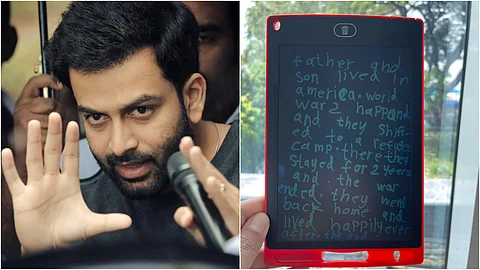 father and
son lived in
america.world
war 2 happand
and they shift-
ed to a refuge
camp.there they
stayed for 2 years
and the war
ended. they went
back home and
lived happily ever
after the end